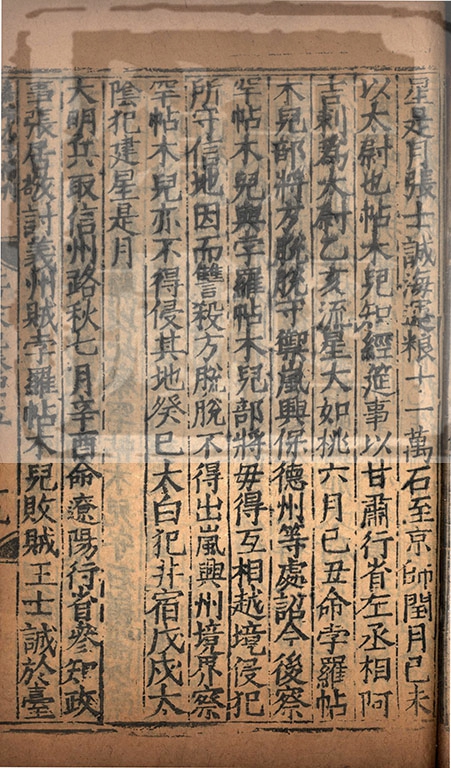 星是月張士誠海運粮十一萬石至京師閏月己未
以太尉也帖木兒知經筵事以甘肅行省左丞相阿
吉剌爲太尉乙亥流星大如桃六月己丑命孛羅帖
木兒部將方脫脫守禦嵐興保德州等處詔今後察
罕帖木兒與孛羅帖木兒部將毋得互相越境侵犯
所守信地因而讐殺方脫脫不得出嵐興州境界察
罕帖木兒亦不得侵其地癸巳太白犯井宿戊戌太
陰犯建星是月
大明兵取信州路秋七月辛酉命遼陽行省參知政
事張居敬討義州賊孛羅帖木兒敗賊王士誠於臺